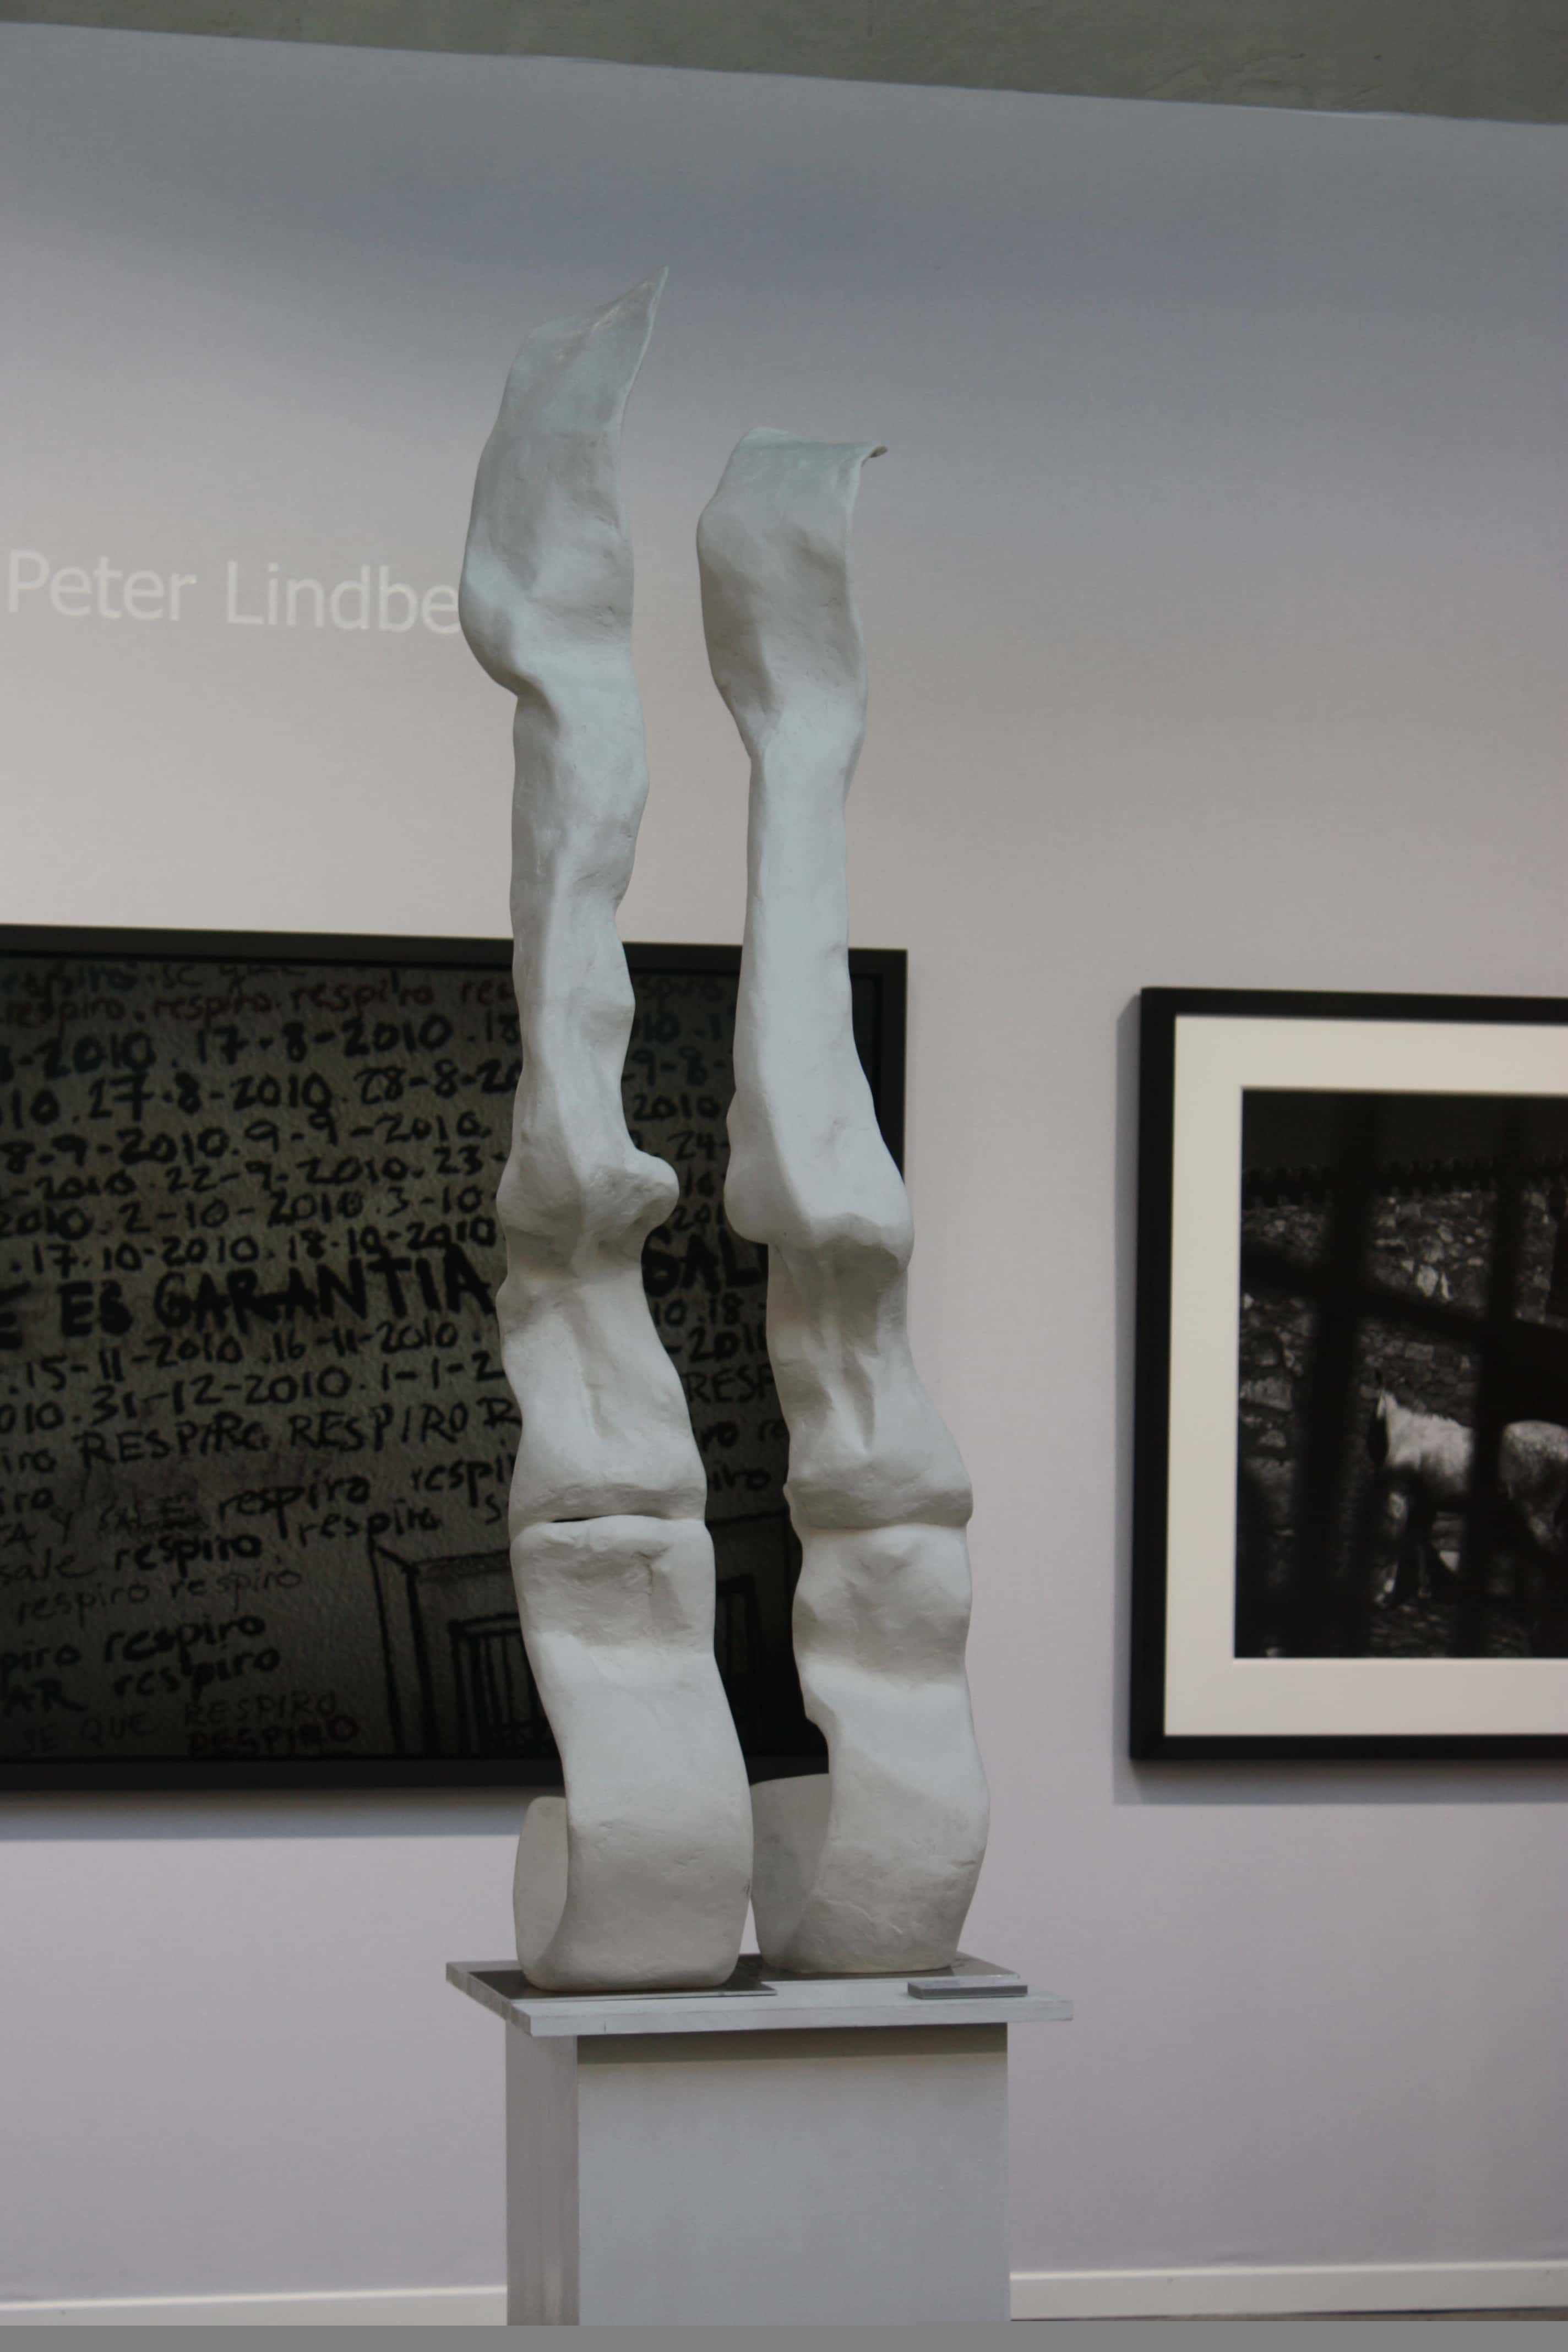 Peter Lindbe
respiro se que
respiro. respiro. respiro res
8-2010. 17-8-2010. 18 10-1
010. 27-8-2010. 28-8-20 9-8-
8-9-2010. 9-9-2010. 2010
-2010. 22-9-2010. 23- 24-
2010. 2-10-2010. 3-10 2010
.17-10-2010. 18-10-2010
E ES GARANTIA SAL
.15-11-2010. 16-11-2010. 10.18-
010. 31-12-2010. 1-1-2 -201
iro RESPIRO, RESPIRO R RESP
iro respiro respi ro re
A Y SALE respiro S iro
sale respiro
respiro respiro
piro respiro
AR respiro
SE QUE RESPIRO
RESPIRO